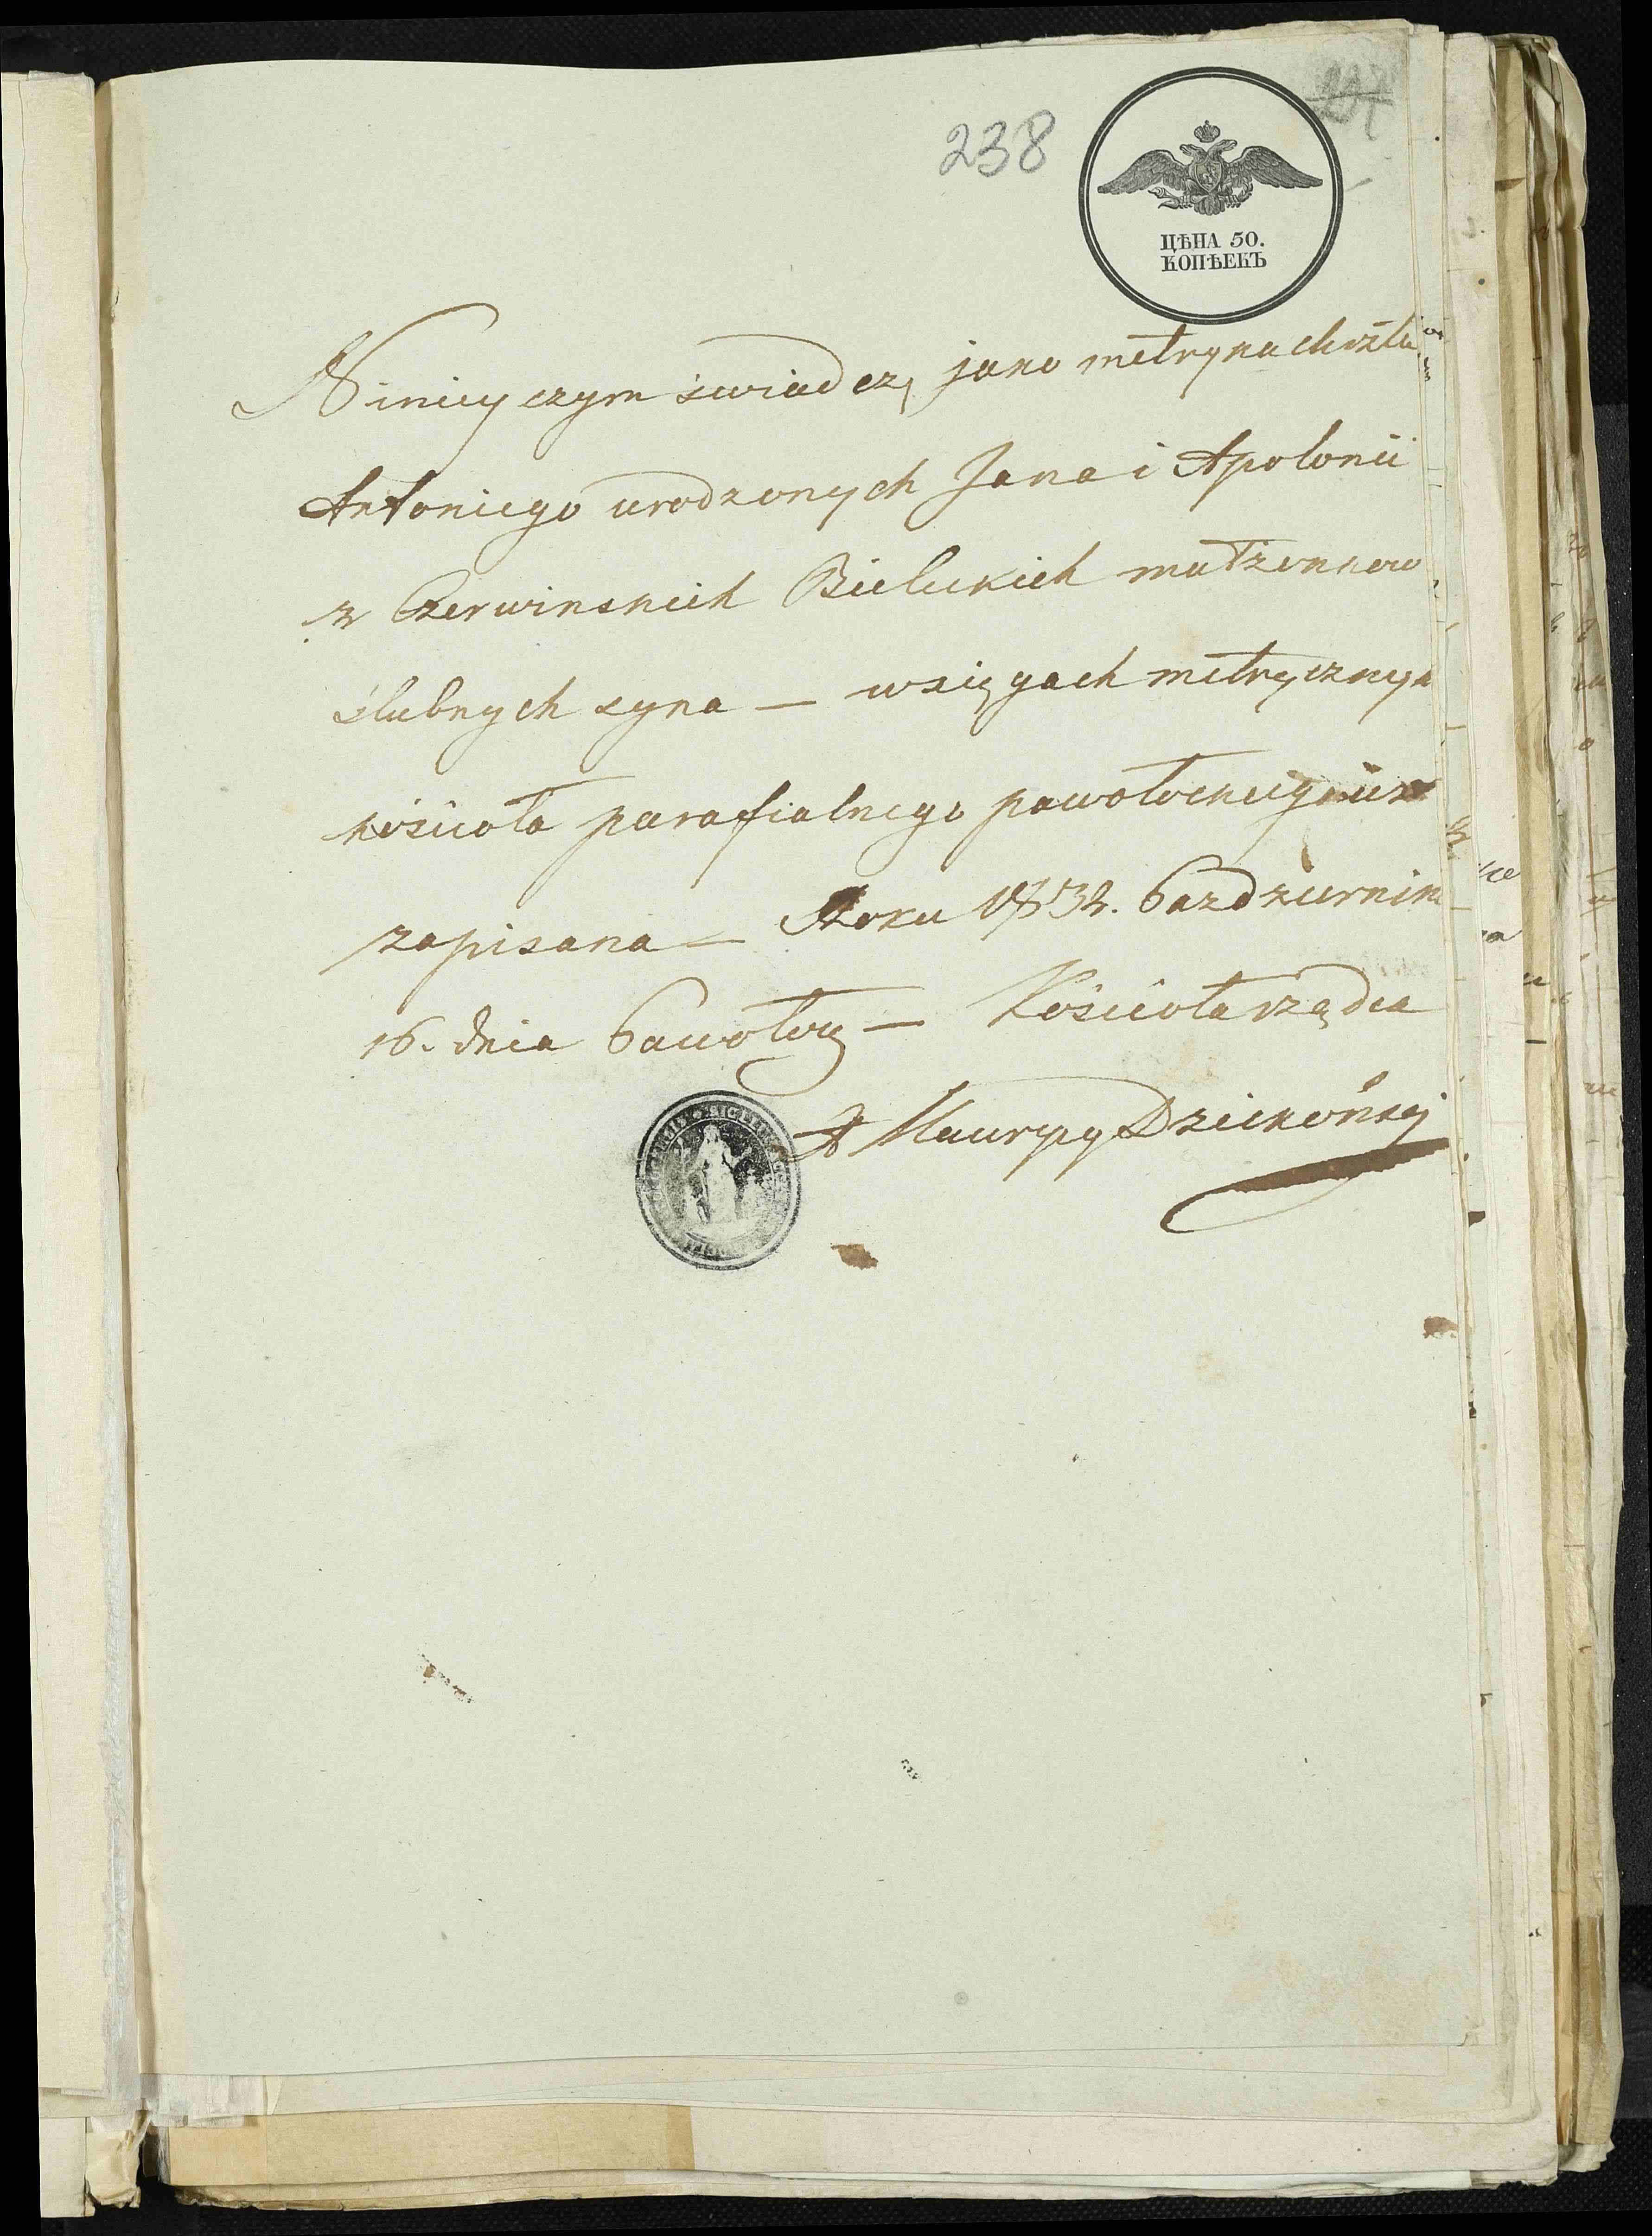 238
ЦѢНА 50.
КОПѢЕКЪ
Niniejszym świadczę jako metryka chrztu
Antoniego urodzonych Jana i Apolonii
z Czerwinskich Bieleckich małżonkow
ślubnych syna — w xięgach metrycznych
kościoła parafialnego pawołockiego jest
zapisana — Roku 1832. Pazdziernika
16. dnia Pawołocz — Kościoła rządca
X Maurycy Dziekoński